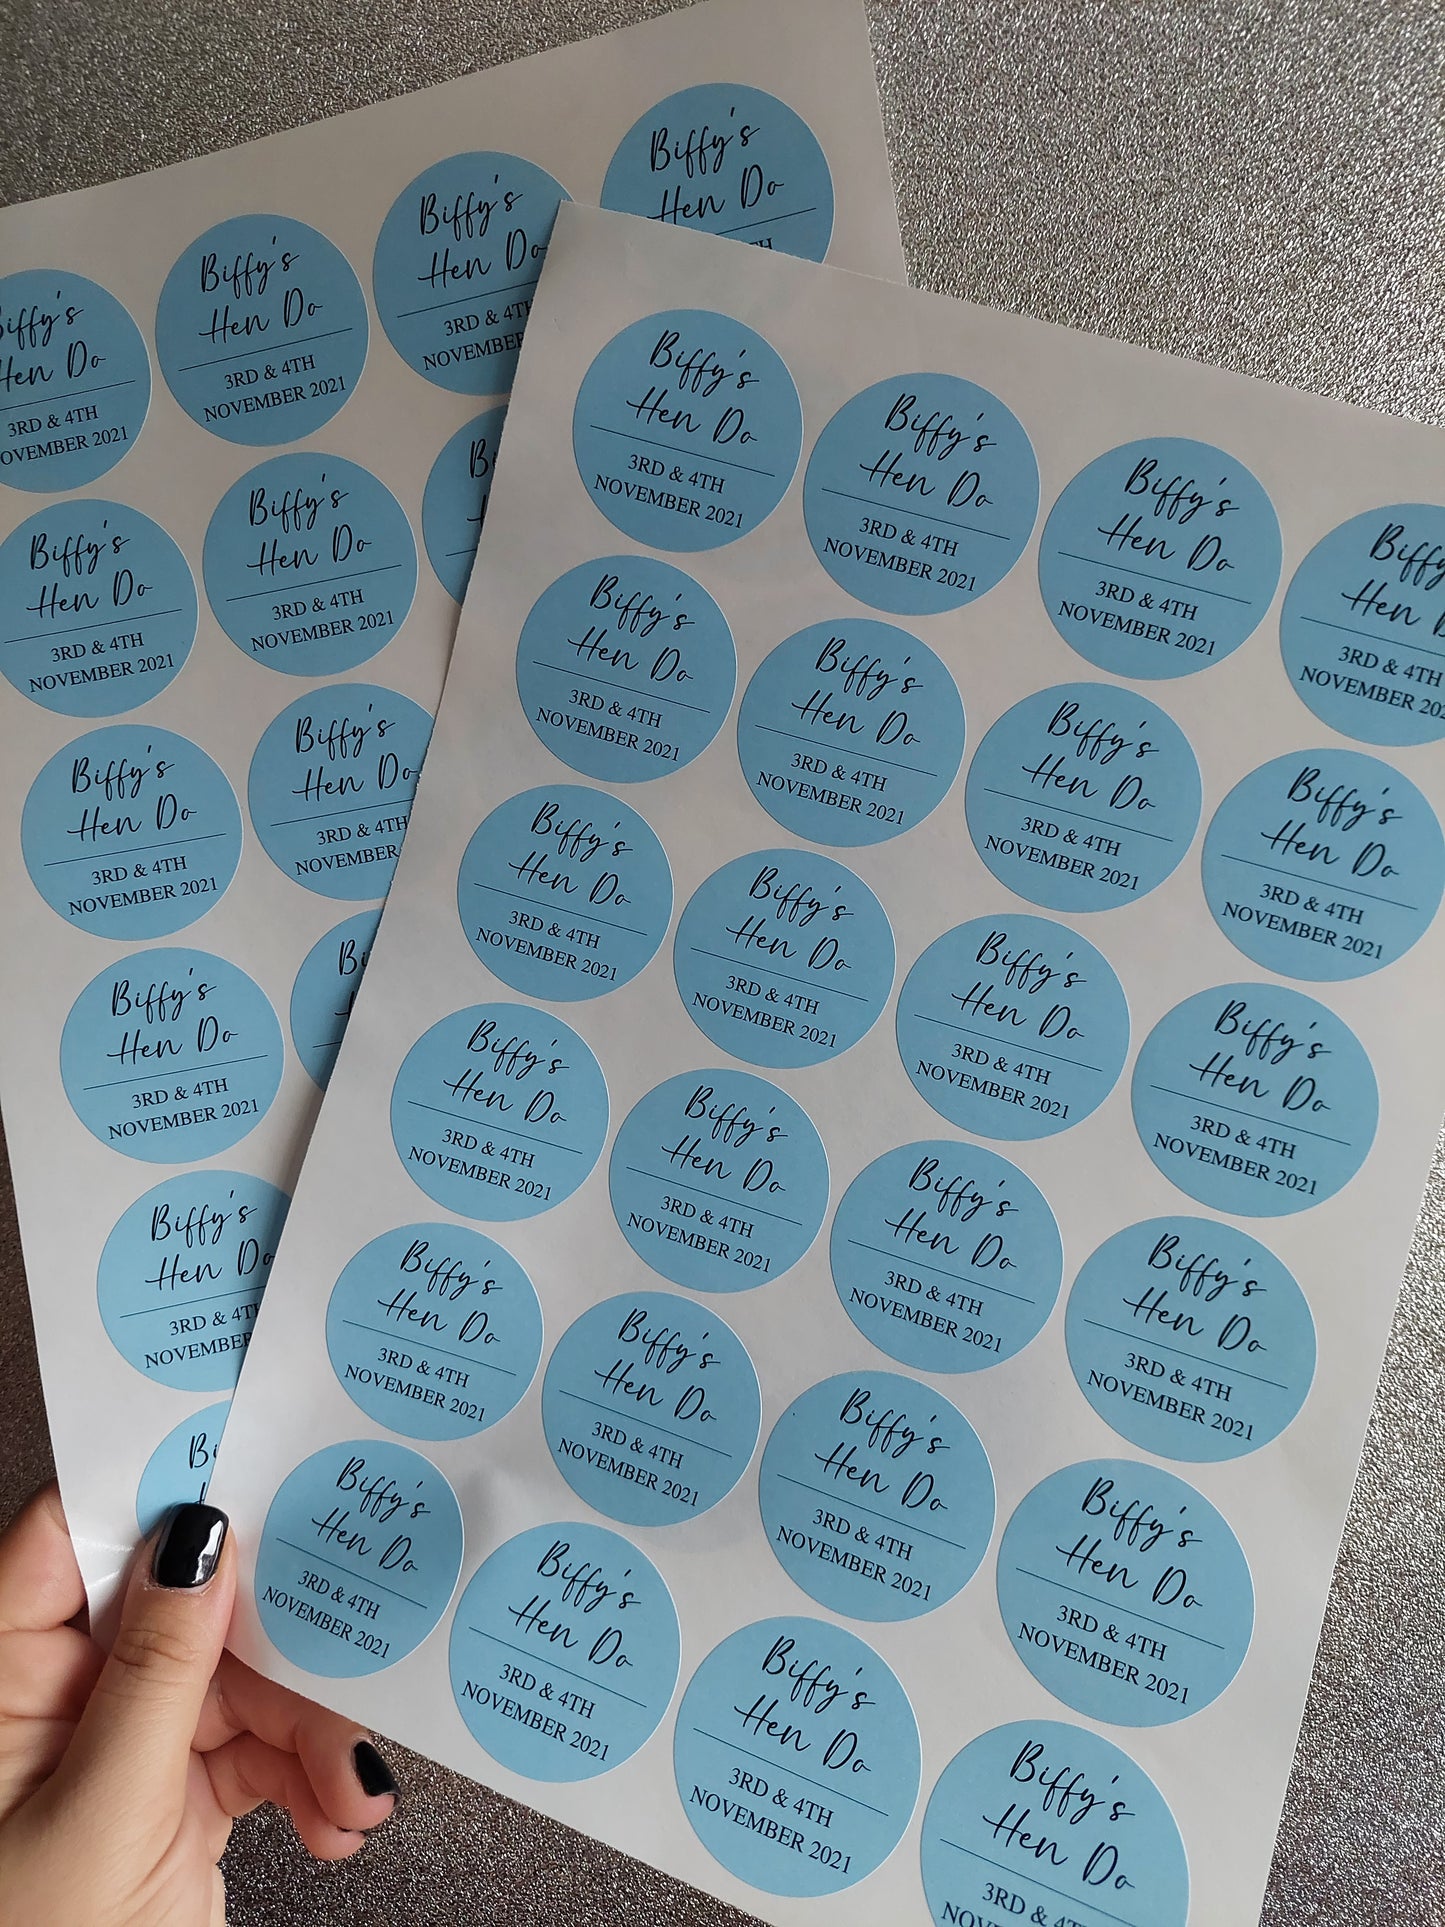 Biffy's
Hen Do
3RD & 4TH
NOVEMBER 2021
Biffy's
Hen Do
3RD & 4TH
NOVEMBER
Biffy's
Hen Do
iffy's
Hen Do
3RD & 4TH
OVEMBER 2021
Biffy's
Hen Do
3RD & 4TH
NOVEMBER 2021
Biffy's
Hen Do
3RD & 4TH
NOVEMBER 2021
Biffy's
Hen Do
3RD & 4TH
NOVEMBER 2021
Biffy's
Hen Do
3RD & 4TH
NOVEMBER
Biffy's
Hen Do
3RD & 4TH
NOVEMBER 2021
Biffy's
Hen Do
3RD & 4T
NOVEMBE
Biffy's
Hen Do
3RD & 4TH
NOVEMBER 2021
Biffy's
Hen Do
3RD & 4TH
NOVEMBER 2021
Biffy's
Hen Do
3RD & 4TH
NOVEMBER 2021
Biffy
Hen D
3RD & 4TH
NOVEMBER 202
Biffy's
Hen Do
3RD & 4TH
NOVEMBER 2021
Biffy's
Hen Do
3RD & 4TH
NOVEMBER 2021
Biffy's
Hen Do
3RD & 4TH
NOVEMBER 2021
Biffy's
Hen Do
3RD & 4TH
NOVEMBER 2021
Biffy's
Hen Do
3RD & 4TH
NOVEMBER 2021
Biffy's
Hen Do
3RD & 4TH
NOVEMBER 2021
Biffy's
Hen Do
3RD & 4TH
NOVEMBER 2021
Biffy's
Hen Do
3RD & 4TH
NOVEMBER 2021
Biffy's
Hen Do
3RD & 4TH
NOVEMBER 2021
Biffy's
Hen Do
3RD & 4TH
NOVEMBER 2021
Biffy's
Hen Do
3RD & 4TH
NOVEMBER 2021
Biffy's
Hen Do
3RD & 4TH
NOVEMBER 2021
Biffy's
Hen Do
3RD & 4TH
NOVEMBER 2021
Biffy's
Hen Do
3RD & 4TH
NOVEMBER 2021
Biffy's
Hen Do
3RD & 4TH
NOVEMBER 2021
Biffy's
Hen Do
3RD & 4TH
NOVEMBER 2021
Biffy's
Hen Do
3RD & 4TH
NOVEMBER 2021
Biffy's
Hen Do
3RD & 4TH
NOVEMBER 2021
Biffy's
Hen Do
3RD & 4TH
NOVEMBER 2021
Biffy's
Hen Do
3RD & 4T